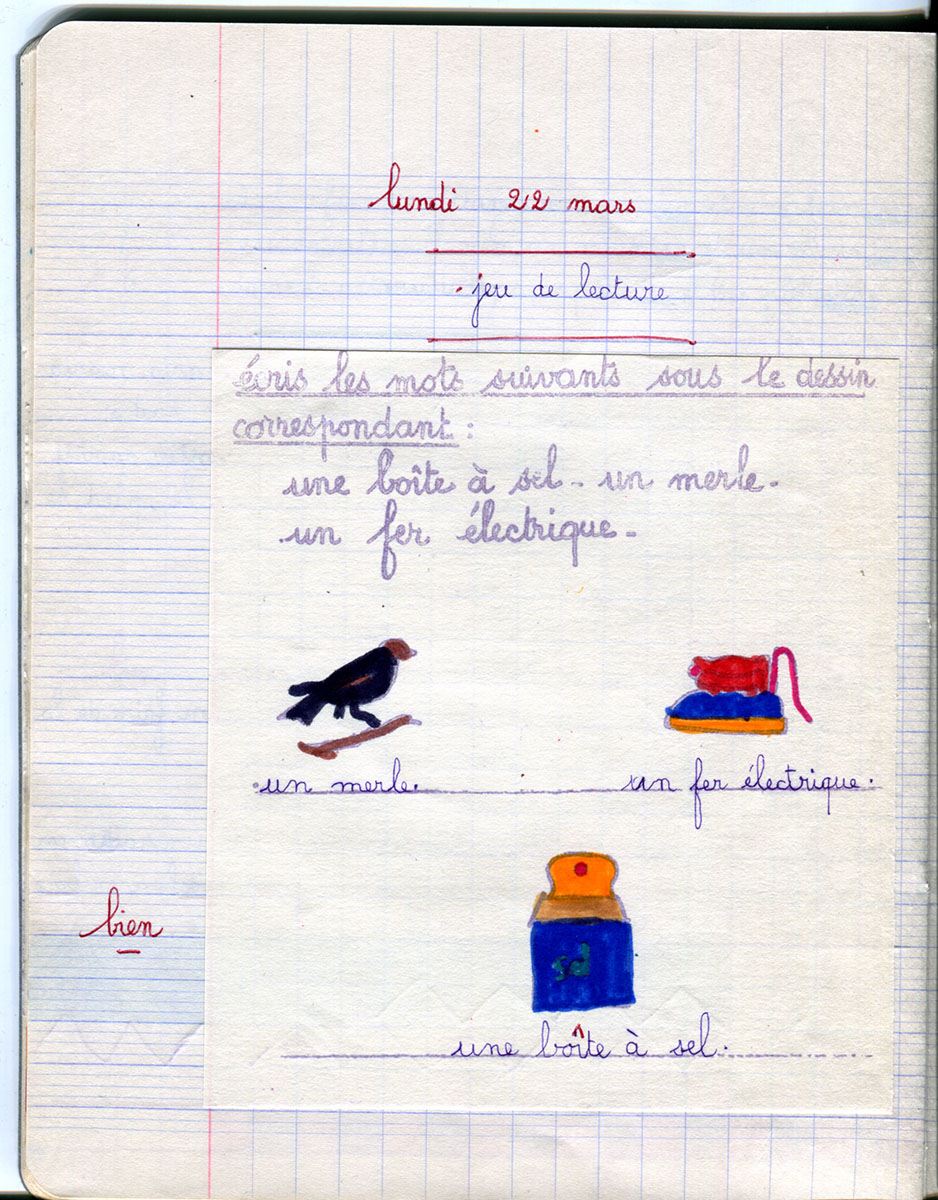 lundi 22 mars
jeu de lecture
écris les mots suivants sous le dessin
correspondant :
une boîte à sel - un merle.
un fer électrique -
un merle.
un fer électrique.
bien
sel
une boîte à sel.